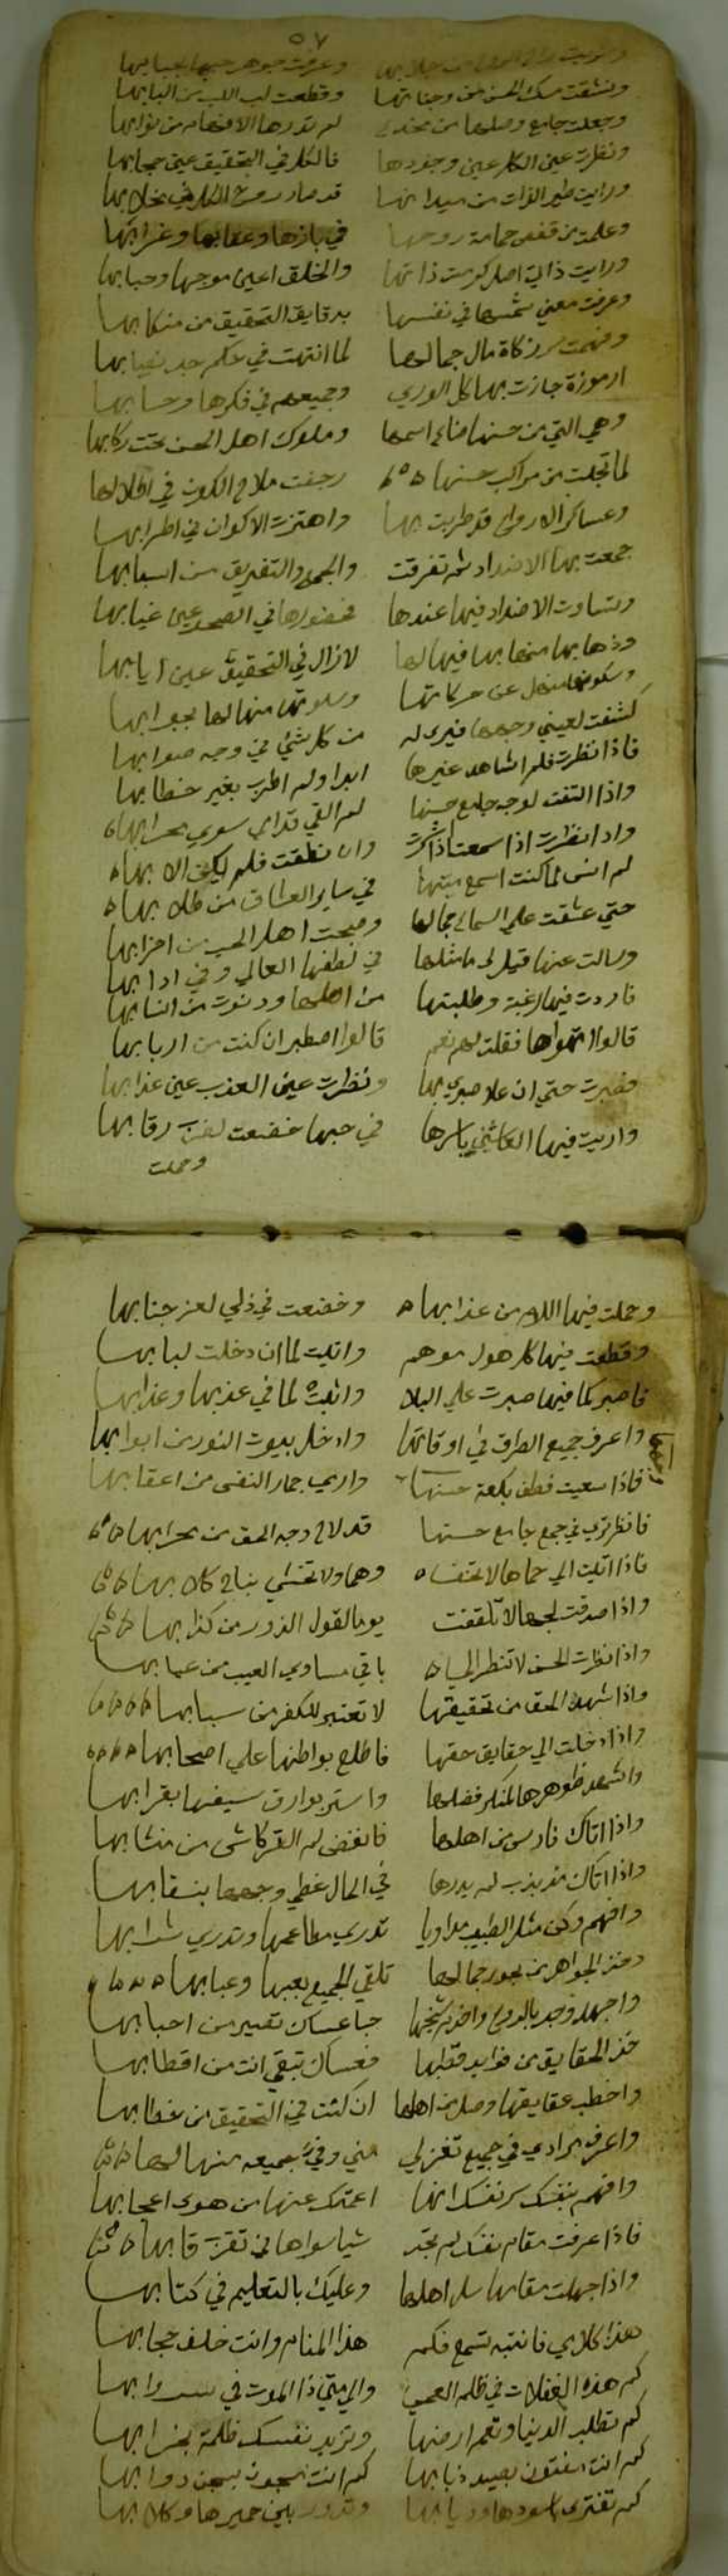 ٥٧
وعرفت جوهر حبها بحبابها
ونشقت مسك الحسن من وجناتها وقطعت لب اللب من البابها
وجعلت جامع وصلها من لم تدرها الافهام من نوابها
ونظرت عين الكل عين وجودها فالكل في التحقيق عين حجابها
ورايت طير الذات من ميدانها قد صار روح الكل في مخلابها
وعلمت من قفص حمامة روحها في بازها وعقابها وغرابها
ورايت ذاتي اصل كرمت ذاتها والخلق اعين موجها وحبابها
وعرفت معني شمسها في نفسها بدقايق التحقيق من
وفهمت سر زكاة مال جمالها لما انتهت في حكم حد نصابها
ارموزة حازت بها كل الوري وجميعهم في فكرها وحسابها
وهي التي من حسنها اسمها وملوك اهل الحسن تحت ركابها
لما تجلت من مراكب حسنها رجفت ملاح الكون في
وعساكر الارواح قد طربت بها واهتزت الاكوان في اطرابها
جمعت بها الاضداد ثم تفرقت والجمع والتفريق من اسبابها
وتساوت الاضداد فيها عندها فحضورها في الصحو عين غيابها
وذهابها منها بها فيها لها لازال في التحقيق عين ايابها
وسكونها عن حركاتها وسلوتها منها لها بجوابها
كشفت لعيني وجهها فيري له من كل شئ في وجه صوابها
فاذا نظرت فلم اشاهد غيرها ابدا ولم اطرب بغير خطابها
واذا التفت لوجه جامع حسنها لم القي قدامي سوي محرابها
واذا نظرت اذا سمعت اذا وان نطقت فلم يكن الا بها
لم انس لما كنت اسمع في ساير العشاق من طلابها
حتي عشقت علي السماع جمالها وصحبت اهل الحب من احزابها
وسالت عنها قيل لي ما مثلها في لطفها العالي وفي ادابها
فازددت فيها رغبة وطلبتها من اهلها ودنوت من انسابها
قالوا اتهواها فقلت لهم نعم قالوا اصطبر ان كنت من اربابها
فصبرت حتي ان علا صبري بها ونظرت عين العذب عين عذابها
واريت فيها العاشقين باسرها في حبها خضعت لعز رقابها
وحملت
وحملت فيها اللوم من عذابها وخضعت في ذلي لعز جنابها
وقطعت فيها كل هول موهم واتيت لما ان دخلت لبابها
فاصبر كما فيها صبرت علي البلا واثبت لما في عذبها وعذابها
واعرف جميع الطرق في اوقاتها وادخل بيوت النور من ابوابها
فاذا سعيت فطف بكعبة حسنها وارمي جمار النفس من اعقابها
فانظر تري في جمع جامع حسنها قد لاح وجه الحق من محرابها
فاذا اتيت الي حماها لا تخف وهما ولا تخشي نباح كلابها
واذا صدقت لحبها لا تلتفت يوما لقول الزور من كذابها
واذا نظرت الحسن لا تنظر الي باقي مساوي العيب من عيابها
واذا شهدت الحق من تحقيقها لا تعتبر للكفر من سبابها
واذا دخلت الي حقايق حقها فاطلع بواطنها علي اصحابها
واشهد ظواهرها لمنكر فضلها واستر بوارق سيفها بقرابها
واذا اتاك فارس من اهلها فانفض له القركاش من نشابها
واذا اتاك مذبذب لم يدرها في الحال غطي وجهها بنقابها
وافهم وكن مثل الطبيب مداويا تدري مطاعمها وتدري شرابها
وخذ الجواهر من بحور جمالها تلقي الجميع بعبها وعبابها
واجهد وجد بالروح واخدم شيخها حبا عساك تصير من احبابها
خذ الحقايق من فوايد قطبها فعساك تبقي انت من اقطابها
واخطب حقايقها وصل من اهلها ان كنت في التحقيق من خطابها
واعرف مرادي في جميع تغزلي مني وفي بجميعه منها لها
وافهم بنفسك سر نفسك انها اعمتك عنها من هوي اعجابها
فاذا عرفت مقام نفسك لم تجد شيا سواها في تقرب قابها
واذا جهلت مقامها سل اهلها وعليك بالتعليم في كتابها
هذا كلامي فانتبه تسمع فكم هذا المنام وانت خلف حجابها
كم هذه الغفلات في ظلم العمي والي متي ذا الموت في سردابها
كم تطلب الدنيا وتعمر ارضها وتزيد نفسك ظلمة بخرابها
كم انت مفتون بصيد ذبابها كم انت مسجون بسجن دوابها
كم تفتري اسودها وديابها وتدور بين حميرها وكلابها